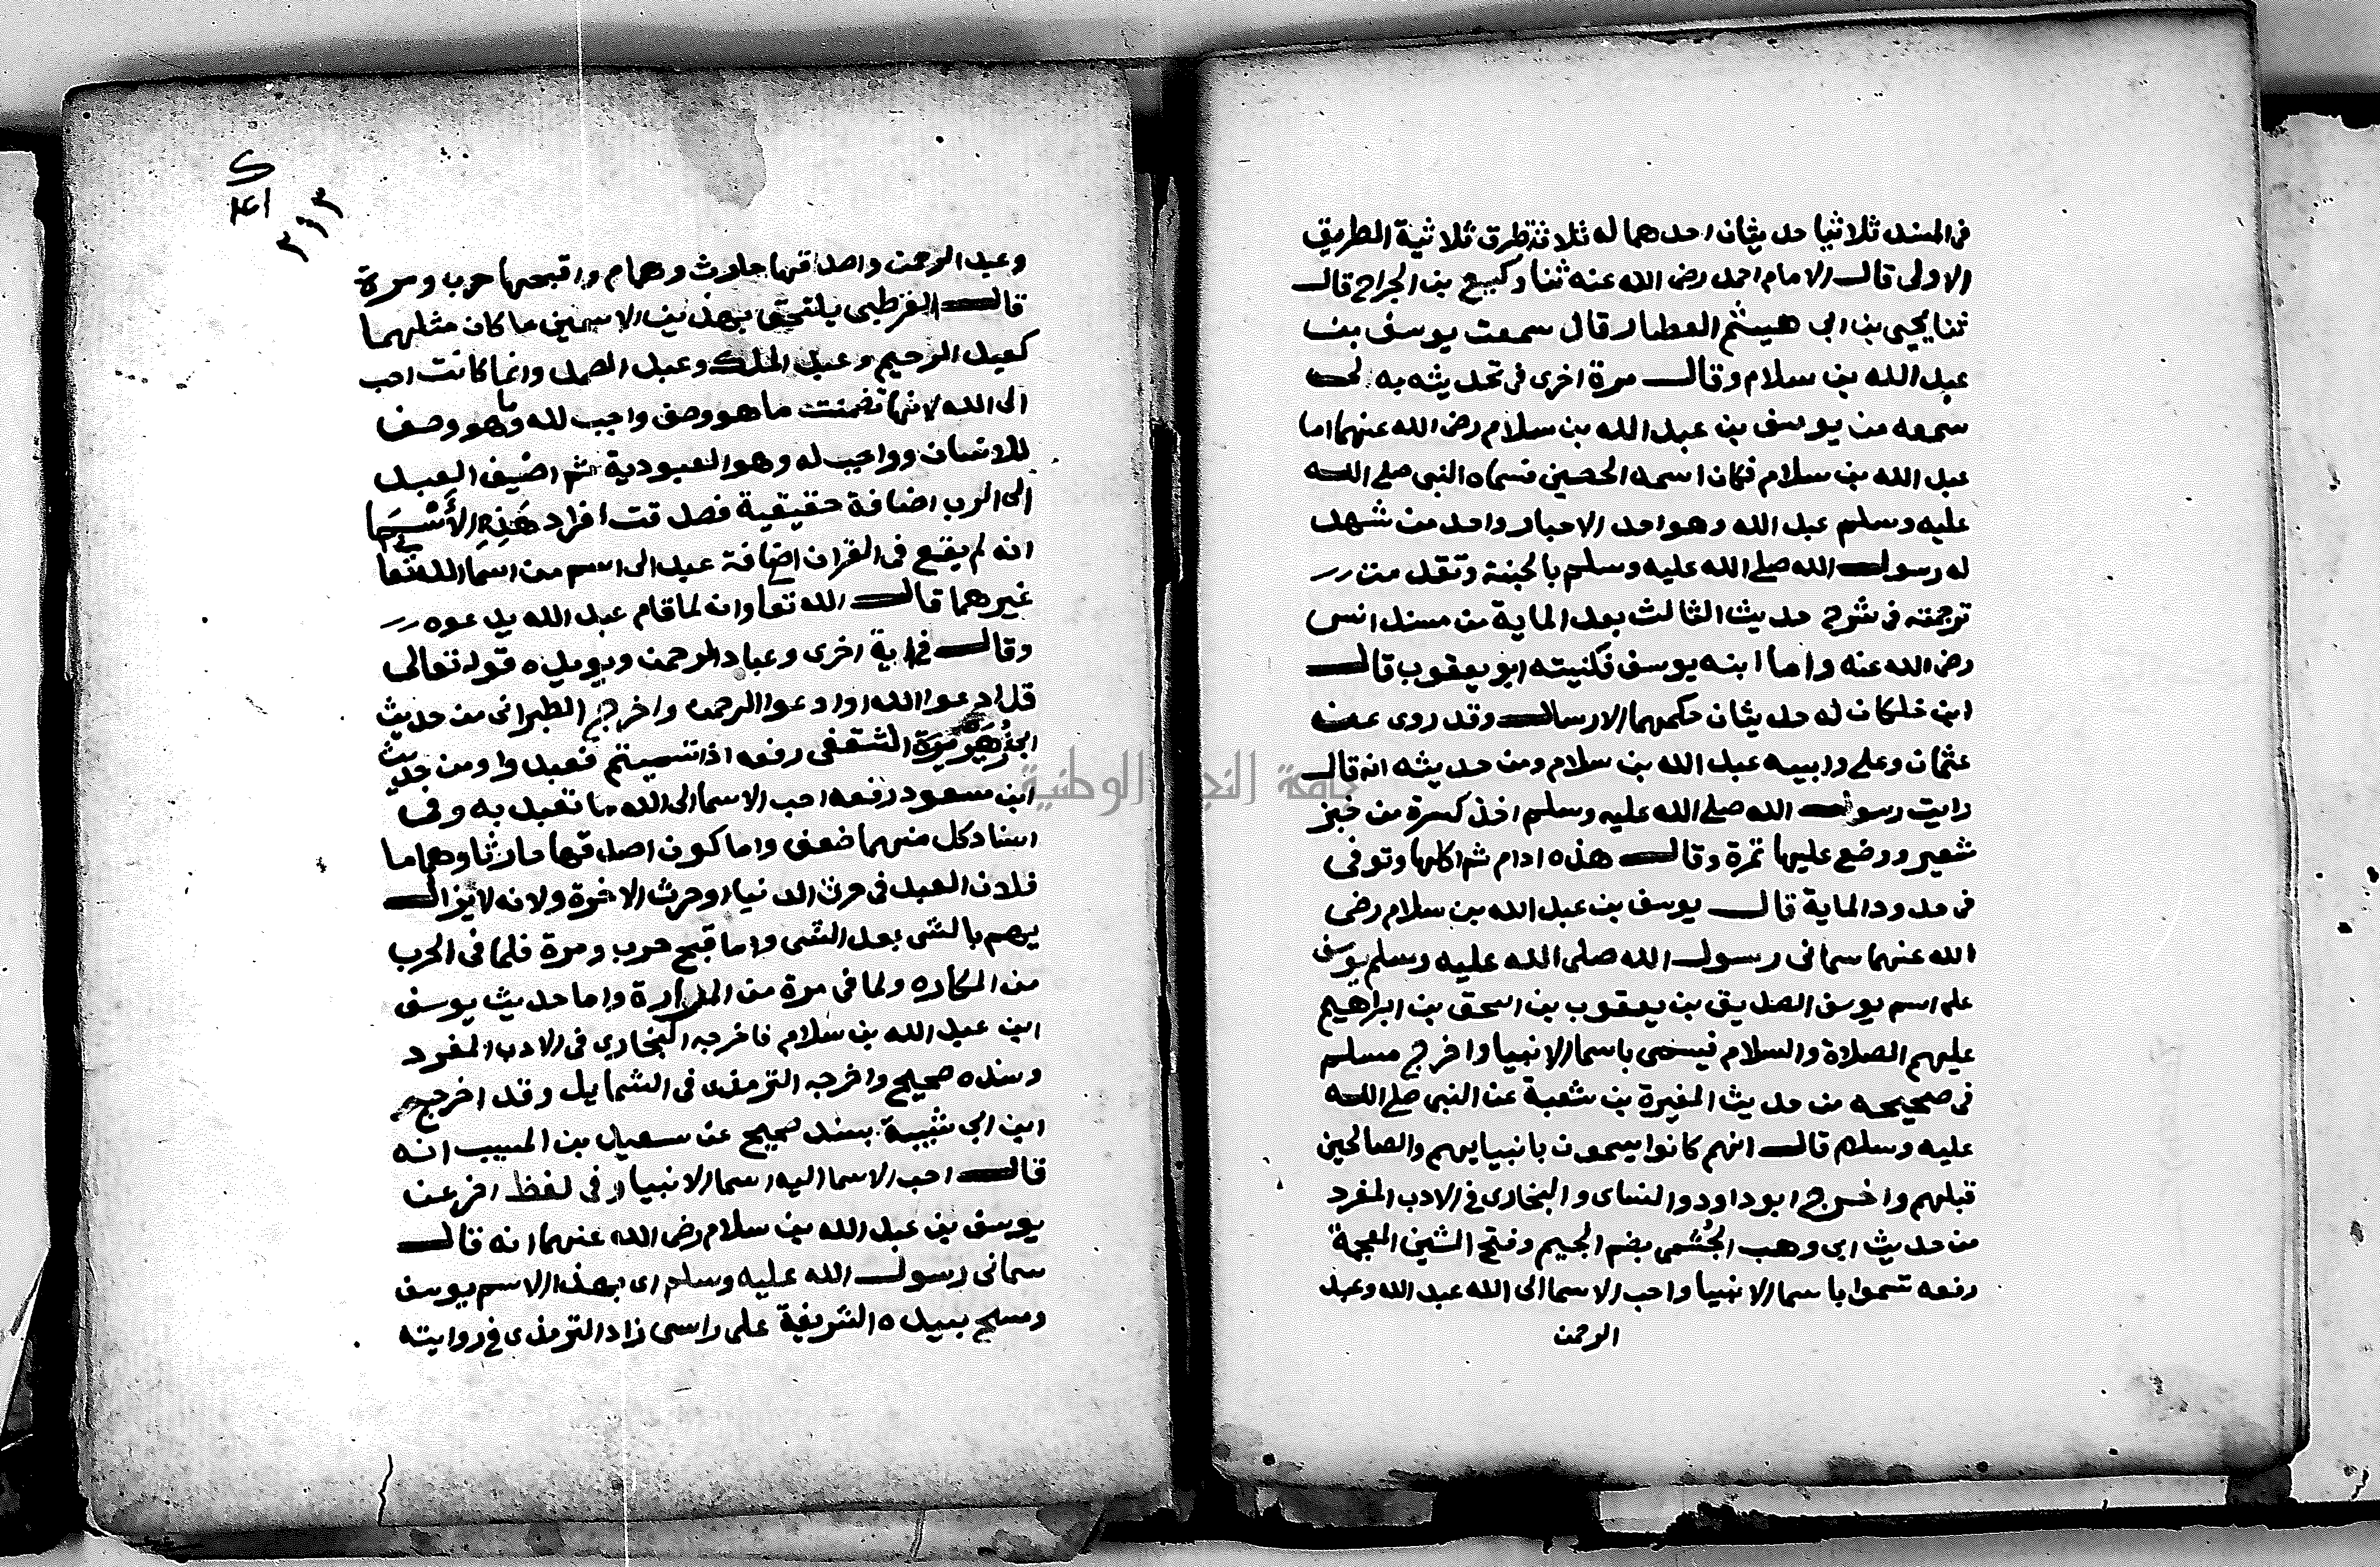 في المسند ثلاثيا حديثان احدهما له ثلاثة طرق ثلاثية الطريق
الاولى قال الامام احمد رضى الله عنه ثنا وكيع بن الجراح قال
ثنا يحيى بن ابي هيثم العطار قال سمعت يوسف بن
عبد الله بن سلام وقال مرة اخرى في تحديثه به
سمعه من يوسف بن عبد الله بن سلام رضى الله عنهما اما
عبد الله بن سلام فكان اسمه الحصين فسماه النبي صلى الله
عليه وسلم عبد الله وهو احد الاحبار واحد من شهد
له رسول الله صلى الله عليه وسلم بالجنة وتقدمت
ترجمته في شرح حديث الثالث بعد الماية من مسند انس
رضى الله عنه واما ابنه يوسف فكنيته ابو يعقوب قال
ابن خلكان له حديثان حكمهما الارسال وقد روى عن
عثمان وعلى وابيه عبد الله بن سلام ومن حديثه انه قال
رايت رسول الله صلى الله عليه وسلم اخذ كسرة من خبز
شعير ووضع عليها تمرة وقال هذه ادام ثم اكلها وتوفى
في حدود الماية قال يوسف بن عبد الله بن سلام رضى
الله عنهما سماني رسول الله صلى الله عليه وسلم يوسف
على اسم يوسف الصديق بن يعقوب بن اسحق بن ابراهيم
عليهم الصلاة والسلام فيسمى باسما الانبيا واخرج مسلم
في صحيحه من حديث المغيرة بن شعبة عن النبي صلى الله
عليه وسلم قال انهم كانوا يسمون بانبيايهم والصالحين
قبلهم واخرج ابو داود والنساى والبخاري في الادب المفرد
من حديث ابي وهب الجُشمي بضم الجيم وفتح الشين المعجمة
رفعه تسموا باسما الانبيا واحب الاسما الى الله عبد الله وعبد
الرحمن
٢١٣
وعبد الرحمن واصدقها حارث وهمام واقبحها حرب ومرة
قال القرطبي يلتحق بهذين الاسمين ما كان مثلهما
كعبد الرحيم وعبد الملك وعبد الصمد وانما كانت احب
الى الله لانها تضمنت ما هو وصف واجب لله وما هو وصف
للانسان وواجب له وهو العبودية ثم اضيف العبد
الى الرب اضافة حقيقية فصدقت افراد هَذِهِ الأَسْمَا
انه لم يقع في القران اضافة عبد الى اسم من اسما الله تعا
غيرهما قال الله تعا وانه لما قام عبد الله يدعوه
وقال في اية اخرى وعباد الرحمن ويويده قوله تعالى
قل ادعوا الله او ادعوا الرحمن واخرج الطبراني من حديث
ابي زهير الثقفي رفعه اذا تسميتم فعبدوا ومن حديث
ابن مسعود رفعه احب الاسما الى الله ما تعبد به وفي
اسناد كل منهما ضعف واما كون اصدقها حارثا وهماما
فلان العبد في حرث الدنيا او حرث الاخرة ولانه لا يزال
يهم بالشى بعد الشى واما قبح حرب ومرة فلما في الحرب
من المكاره ولما في مرة من المرارة واما حديث يوسف
ابن عبد الله بن سلام فاخرجه البخاري في الادب المفرد
وسنده صحيح واخرجه الترمذى في الشمايل وقد اخرج
ابن ابي شيبة بسند صحيح عن سعيد بن المسيب انه
قال احب الاسما اليه اسما الانبيا وفي لفظ اخر عن
يوسف بن عبد الله بن سلام رضى الله عنهما انه قال
سماني رسول الله عليه وسلم اى بهذا الاسم يوسف
ومسح بيده الشريفة على راسى زاد الترمذى في روايته